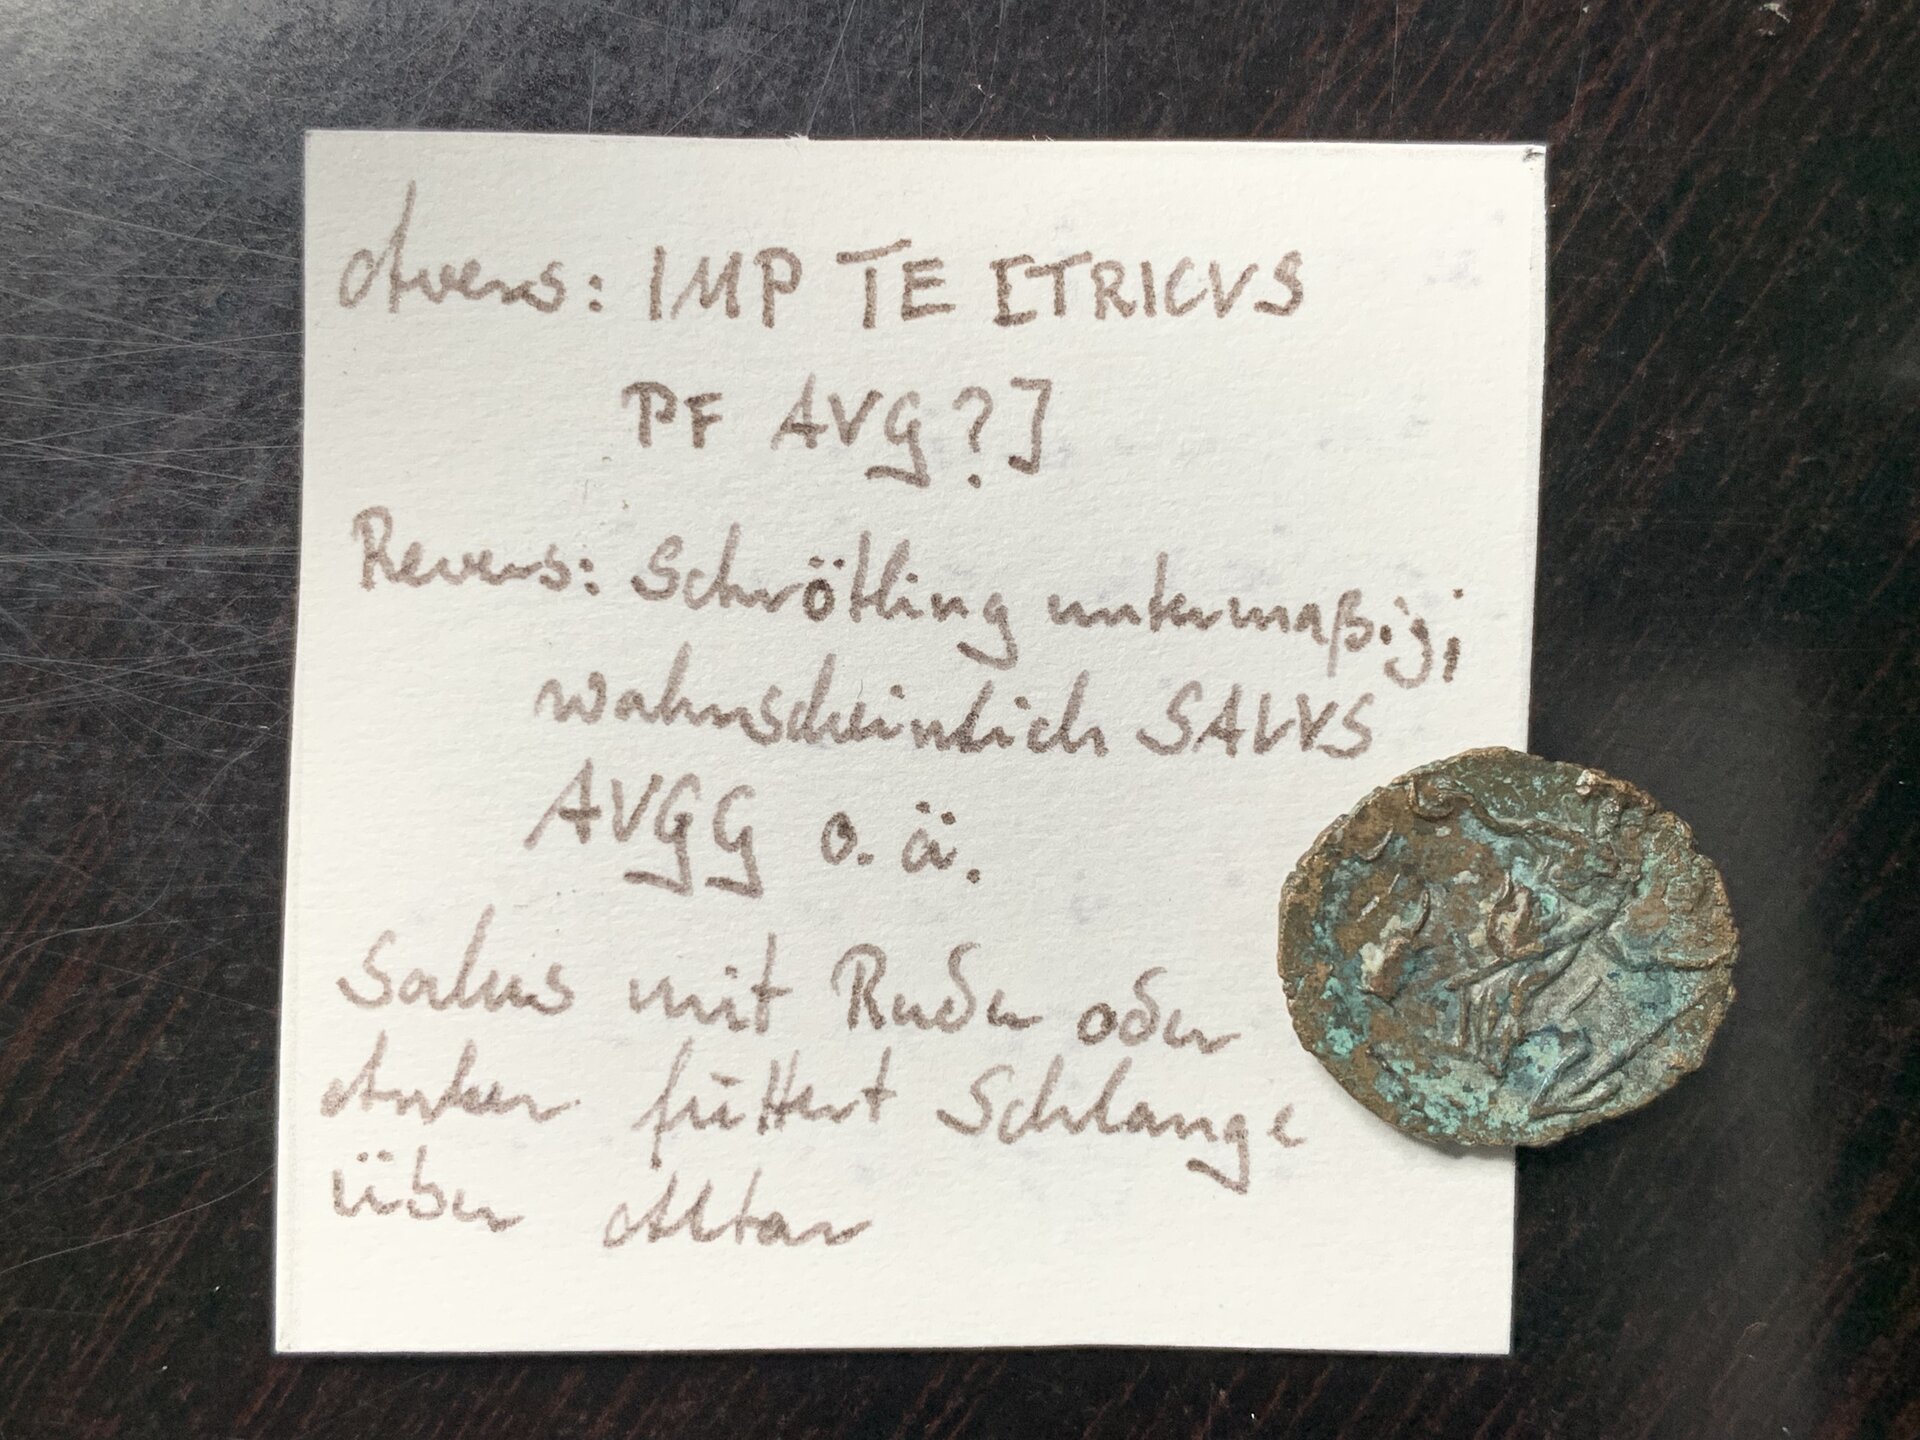 Avers: IMP TE [TRICVS
PF AVG?]
Revers: Schrötling untermaßig;
wahrscheinlich SALVS
AVGG o. ä.
Salus mit Ruder oder
Anker füttert Schlange
über Altar